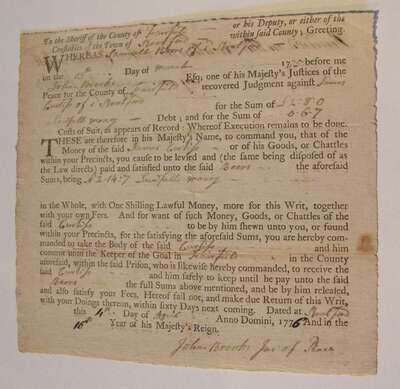 To the Sheriff of the County of Fairfield or his Deputy, or either of the
Constables of the Town of Stratford within said County; Greeting.
WHEREAS Samuel Beers of Stratford
on the Day of March before me
John Brooks Esq; one of his Majesty's Justices of the
Peace for the County of Fairfield recovered Judgment against James
Curtiss of Stratford
for the Sum of £ 1:8:0
Lawfull money Debt; and for the Sum of 0:6:7
Costs of Suit, as appears of Record: Whereof Execution remains to be done.
THESE are therefore in his Majesty's Name, to command you, that of the
Money of the said James Curtiss or of his Goods, or Chattles
within your Precincts, you cause to be levied and (the same being disposed of as
the Law directs) paid and satisfied unto the said Beers the aforesaid
Sums, being £ 1:14:7 Lawfull money
in the Whole, with One Shilling Lawful Money, more for this Writ, together
with your own Fees. And for want of such Money, Goods, or Chattles of the
said Curtiss to be by him shewn unto you, or found
within your Precincts, for the satisfying the aforesaid Sums, you are hereby com-
manded to take the Body of the said Curtiss and him
commit unto the Keeper of the Goal in Fairfield in the County
aforesaid, within the said Prison, who is likewise hereby commanded, to receive the
said Curtiss and him safely to keep until he pay unto the said
Beers the full Sums above mentioned, and be by him released,
and also satisfy your Fees. Hereof fail not, and make due Return of this Writ,
with your Doings thereon, within Sixty Days next coming. Dated at Stratford
this 4th Day of April Anno Domini, 1776 And in the
16th Year of his Majesty's Reign.
John Brooks Jus of Peace